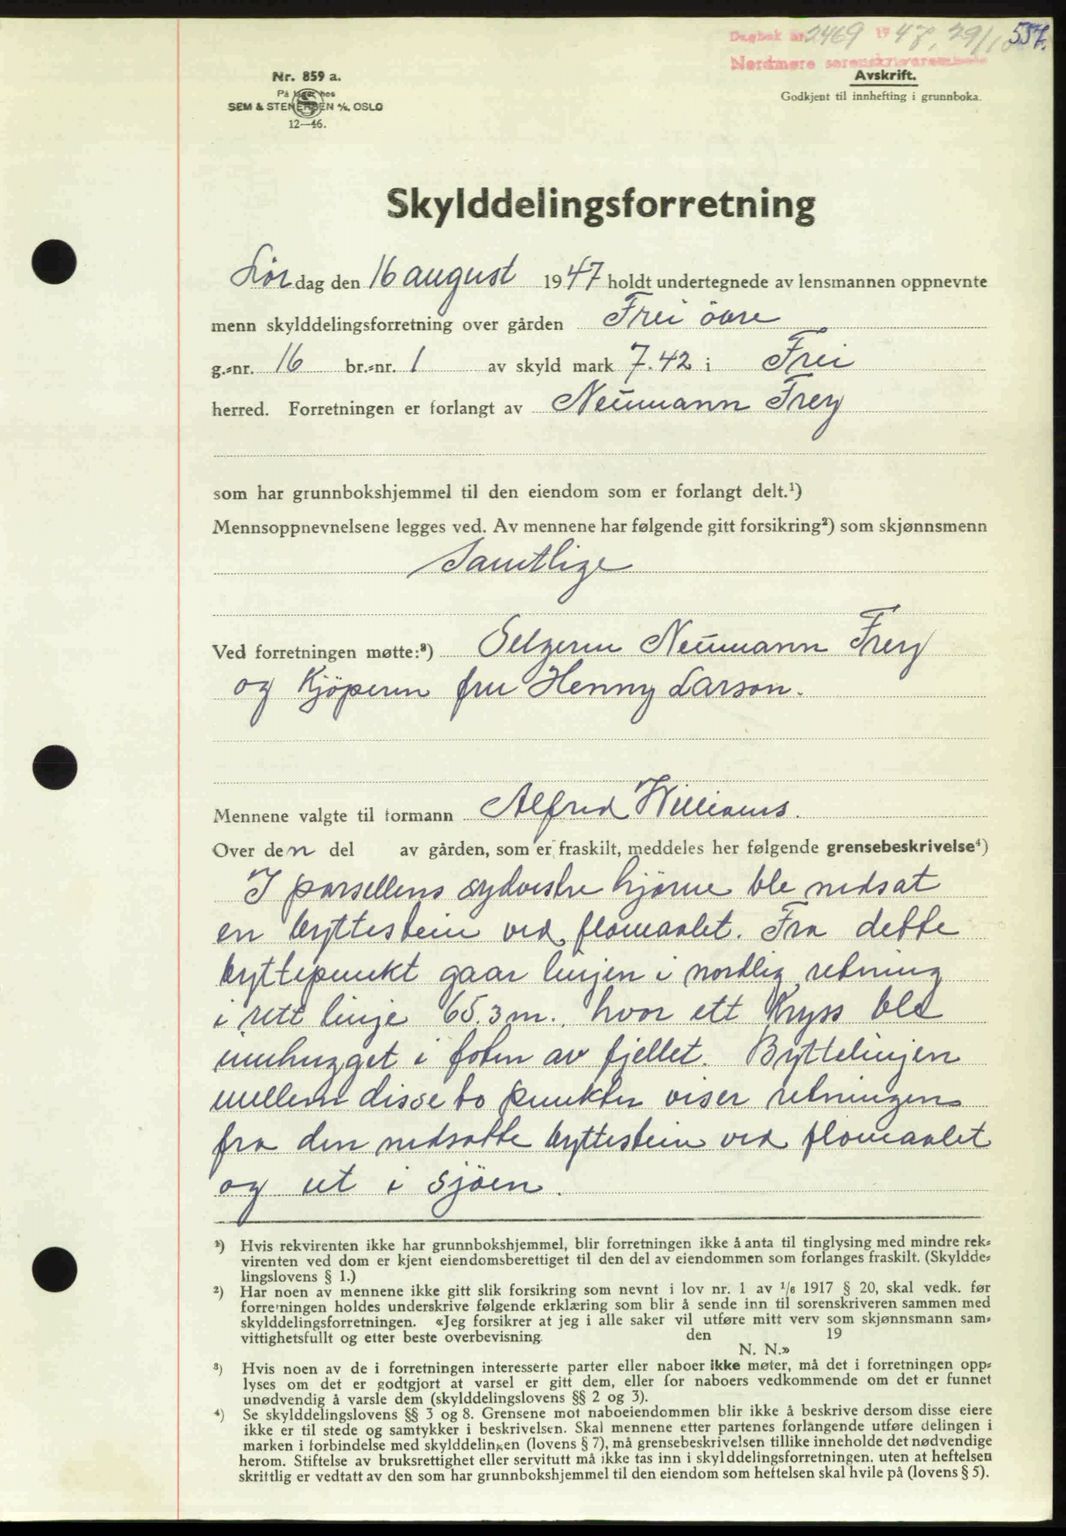 Dagbok nr. 2469 1947, 29/10 557.
Nordmøre sorenskriverembede
Nr. 859 a.
På lager hos
SEM & STENERSEN A/S, OSLO
12—46.
Avskrift.
Godkjent til innhefting i grunnboka.
Skylddelingsforretning
Lør dag den 16 august 1947 holdt undertegnede av lensmannen oppnevnte
menn skylddelingsforretning over gården Frei öore
g.-nr. 16 br.-nr. 1 av skyld mark 7.42 i Frei
herred. Forretningen er forlangt av Neumann Frey
som har grunnbokshjemmel til den eiendom som er forlangt delt.¹)
Mennsoppnevnelsene legges ved. Av mennene har følgende gitt forsikring²) som skjønnsmenn
Samtlige
Ved forretningen møtte:³) Selgeren Neumann Frey
og Kjöperen fru Henny Larson.
Mennene valgte til formann Alfred Williams.
Over den del av gården, som er fraskilt, meddeles her følgende grensebeskrivelse⁴)
I parsellens sydvestre hjörne ble nedsat
en byttestein ved flomaalet. Fra dette
byttepunkt gaar linjen i nordlig retning
i rett linje 65.3 m. hvor ett Kryss ble
innhugget i foten av fjellet. Byttelinjen
mellem disse to punkter viser retningen
fra den nedsatte byttestein ved flomaalet
og ut i sjöen.
¹) Hvis rekvirenten ikke har grunnbokshjemmel, blir forretningen ikke å anta til tinglysing med mindre rek-
virenten ved dom er kjent eiendomsberettiget til den del av eiendommen som forlanges fraskilt. (Skyldde-
lingslovens § 1.)
²) Har noen av mennene ikke gitt slik forsikring som nevnt i lov nr. 1 av 1/6 1917 § 20, skal vedk. før
forretningen holdes underskrive følgende erklæring som blir å sende inn til sorenskriveren sammen med
skylddelingsforretningen. «Jeg forsikrer at jeg i alle saker vil utføre mitt verv som skjønnsmann sam-
vittighetsfullt og etter beste overbevisning den 19
N. N.»
³) Hvis noen av de i forretningen interesserte parter eller naboer ikke møter, må det i forretningen opp-
lyses om det er godtgjort at varsel er gitt dem, eller for naboers vedkommende om det er funnet
unødvendig å varsle dem (skylddelingslovens §§ 2 og 3).
⁴) Se skylddelingslovens §§ 3 og 8. Grensene mot naboeiendommen blir ikke å beskrive dersom disse eiere
ikke er til stede og samtykker i beskrivelsen. Skal mennene etter partenes forlangende utføre delingen i
marken i forbindelse med skylddelingen (lovens § 7), må grensebeskrivelsen tillike inneholde det nødvendige
herom. Stiftelse av bruksrettighet eller servitutt må ikke tas inn i skylddelingsforretningen, uten at heftelsen
skrittlig er vedtatt av den som har grunnbokshjemmel til den eiendom som heftelsen skal hvile på (lovens § 5).